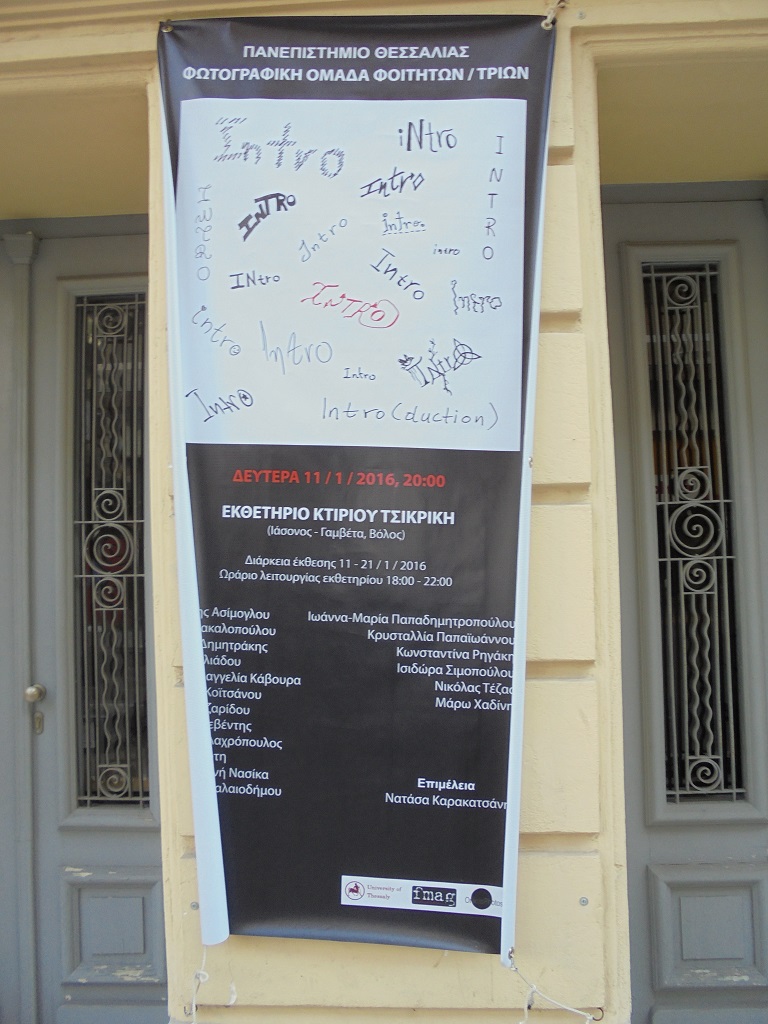 ΠΑΝΕΠΙΣΤΗΜΙΟ ΘΕΣΣΑΛΙΑΣ
ΦΩΤΟΓΡΑΦΙΚΗ ΟΜΑΔΑ ΦΟΙΤΗΤΩΝ / ΤΡΙΩΝ
Intro
iNtro
INTRO
INTRO
INTRO
Intro
Intro
intro.
intro
INtro
Intro
INTRO
intro
intro
Intro
Intro
Intro
Intro
Intro(duction)
ΔΕΥΤΕΡΑ 11 / 1 / 2016, 20:00
ΕΚΘΕΤΗΡΙΟ ΚΤΙΡΙΟΥ ΤΣΙΚΡΙΚΗ
(Ιάσονος - Γαμβέτα, Βόλος)
Διάρκεια έκθεσης 11 - 21 / 1 / 2016
Ωράριο λειτουργίας εκθετηρίου 18:00 - 22:00
ης Ασίμογλου
ακαλοπούλου
Δημητράκης
λιάδου
αγγελία Κάβουρα
Κοϊτσάνου
ζαρίδου
εβέντης
λαχρόπουλος
τη
νή Νασίκα
αλαιοδήμου
Ιωάννα-Μαρία Παπαδημητροπούλου
Κρυσταλλία Παπαϊωάννου
Κωνσταντίνα Ρηγάκη
Ισιδώρα Σιμοπούλου
Νικόλας Τέζας
Μάρω Χαδίνη
Επιμέλεια
Νατάσα Καρακατσάνη
University of
Thessaly
fmag